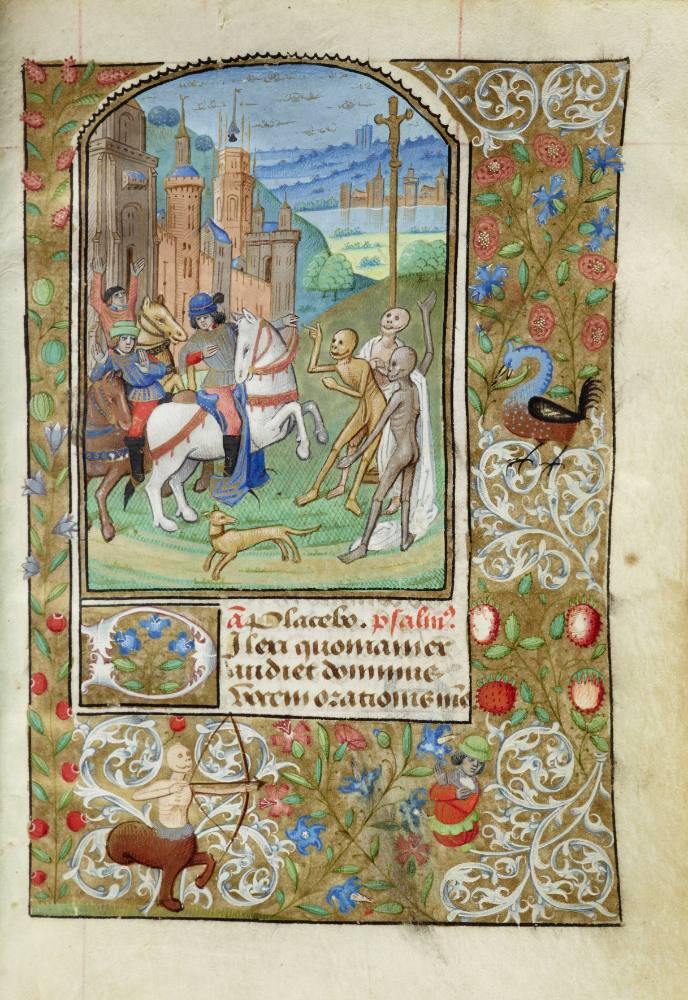 a Placebo. psalm⁹
Dilexi quoniam ex
audiet dominus
vocem orationis me